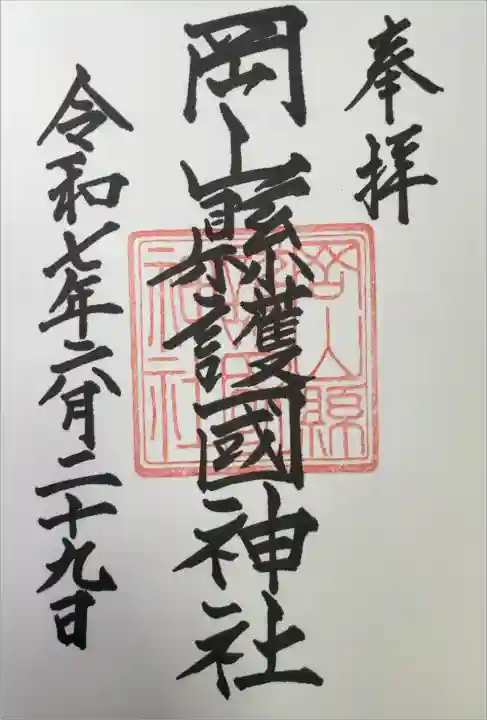 奉拝
岡山縣護國神社
岡山縣
神社
令和七年六月二十九日